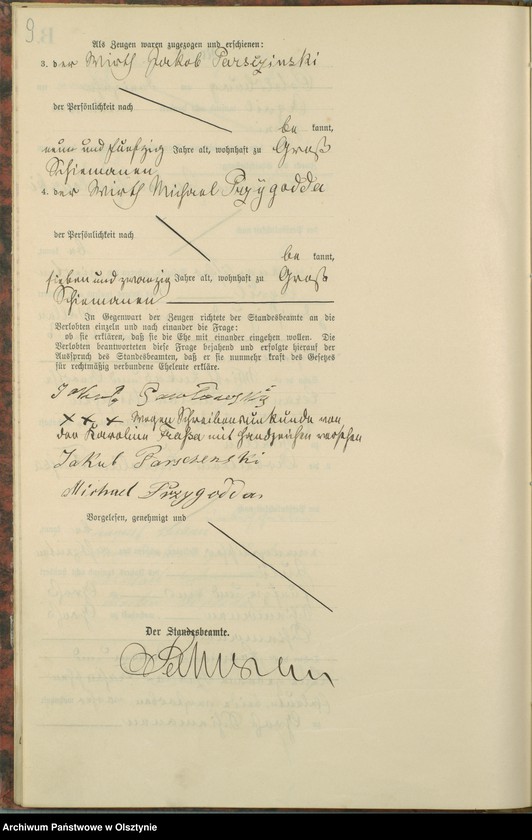 9
Als Zeugen waren zugezogen und erschienen:
3. der Wirth Jakob Parszinski
der Persönlichkeit nach
be kannt,
neun und fünfzig Jahre alt, wohnhaft zu Groß
Schiemanen
4. der Wirth Michael Przygodda
der Persönlichkeit nach
be kannt,
sieben und zwanzig Jahre alt, wohnhaft zu Groß
Schiemanen
In Gegenwart der Zeugen richtete der Standesbeamte an die
Verlobten einzeln und nach einander die Frage:
ob sie erklären, daß sie die Ehe mit einander eingehen wollen. Die
Verlobten beantworteten diese Frage bejahend und erfolgte hierauf der
Ausspruch des Standesbeamten, daß er sie nunmehr kraft des Gesetzes
für rechtmäßig verbundene Eheleute erkläre.
+ + + wegen Schreibensunkunde von
der Karoline mit Handzeichen versehen
Jakub Parschenski
Michael Przygodda
Vorgelesen, genehmigt und
Der Standesbeamte.
Archiwum Państwowe w Olsztynie